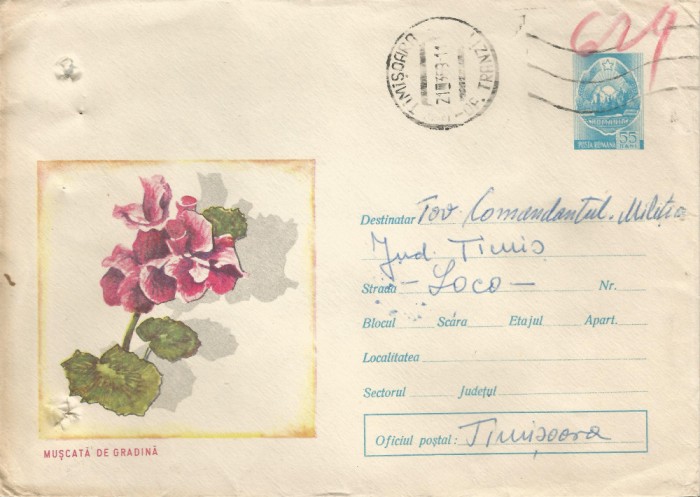 629
TIMIȘOARA
21.9-11
POSTA ROMANA 55
Destinatar Tov Comandantul. Miliția
Jud. Timiș
Strada - Loco - Nr.
Blocul Scára Etajul Apart.
Localitatea
Sectorul Județul
Oficiul poștal: Timișoara
MUȘCATĂ DE GRADINĂ